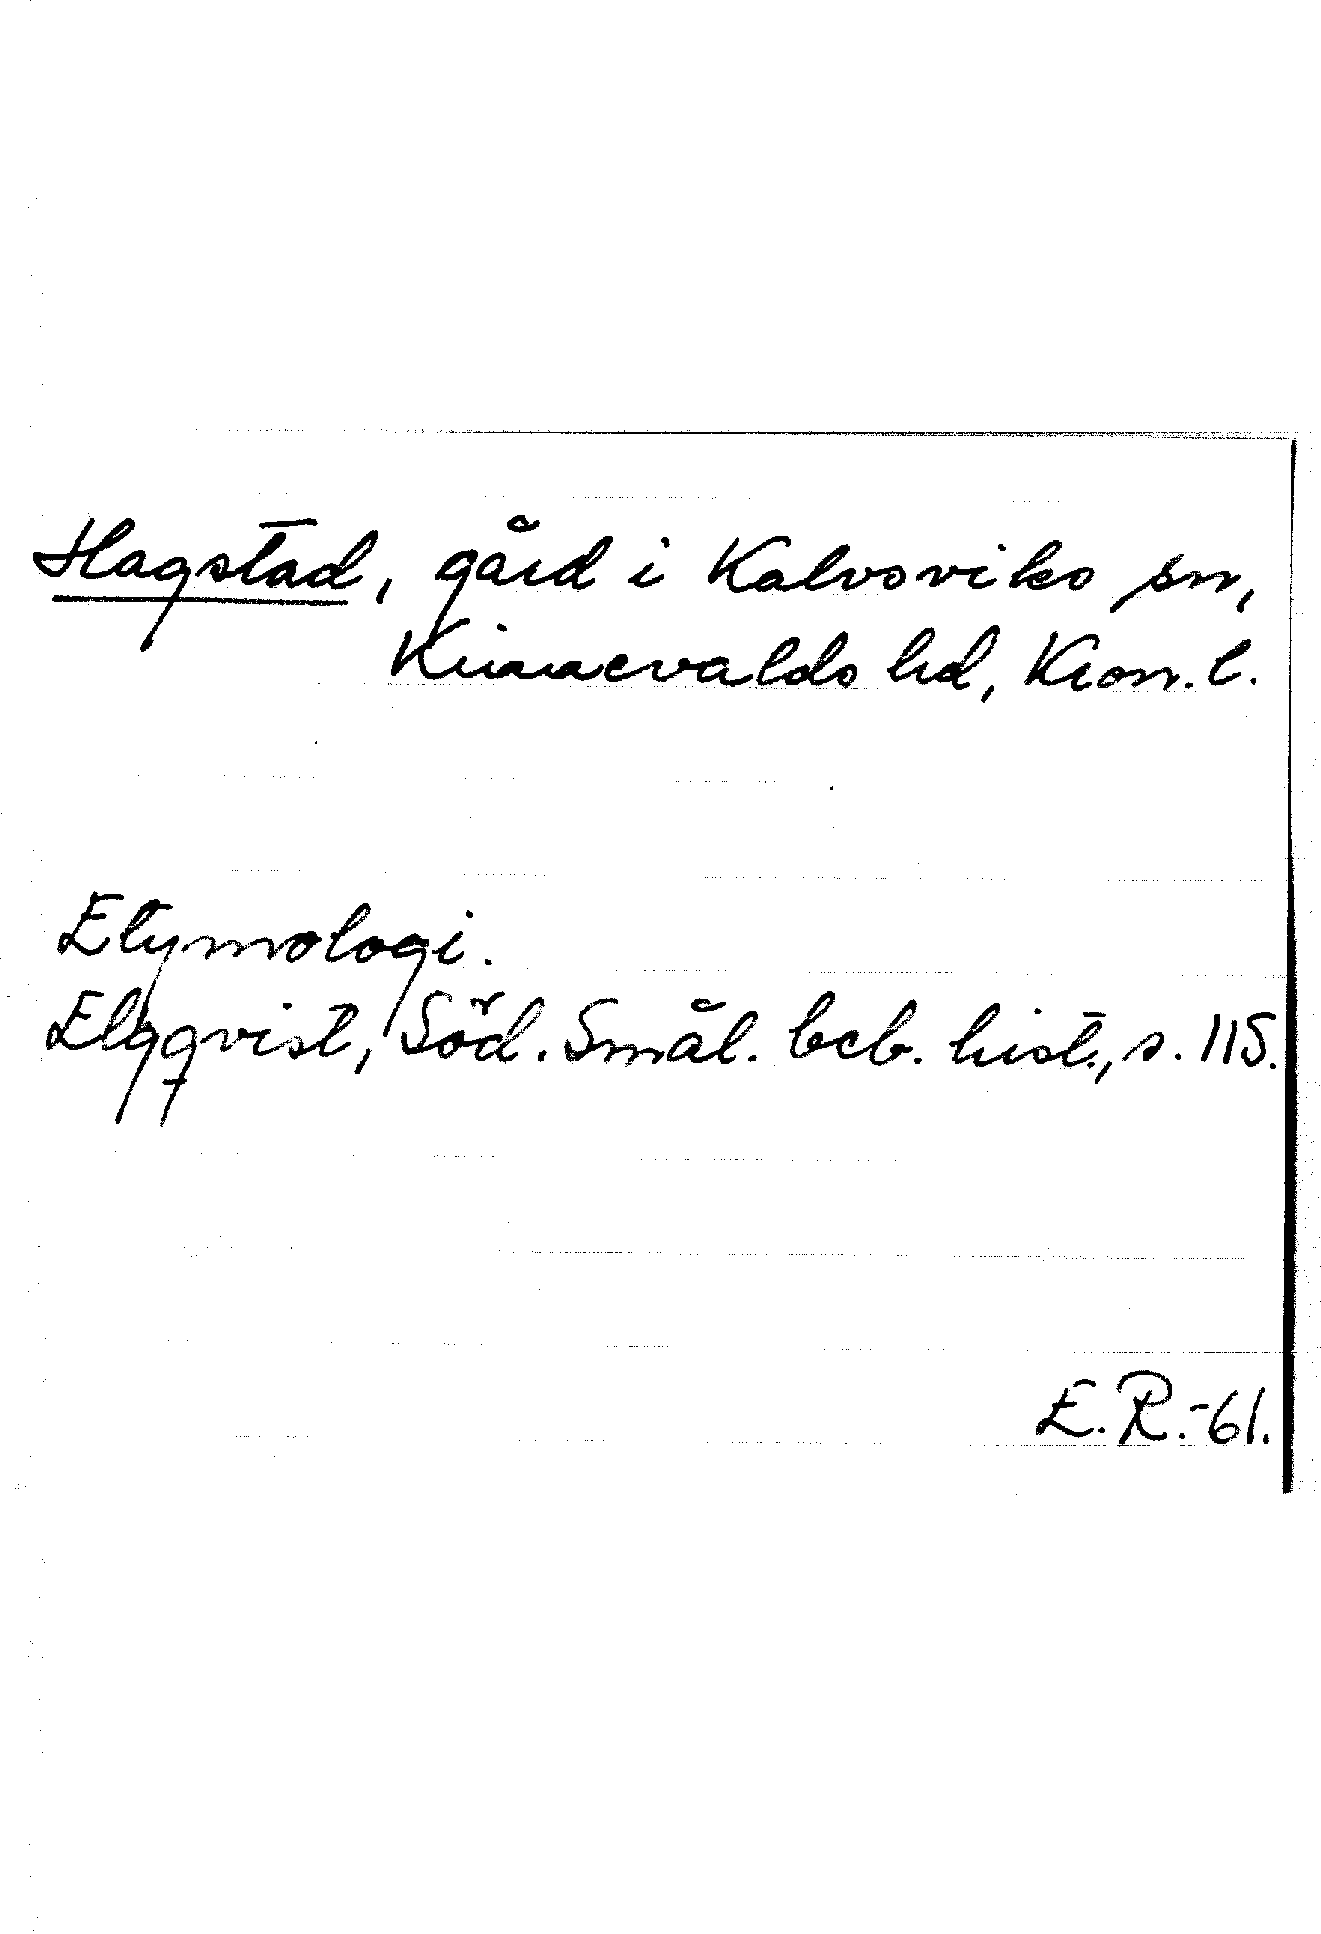 Hagstad, gård i Kalvsviks sn,
Kinnevalds hd, Kron. l.
Etymologi.
Elgqvist, Söd. Smål. beb. hist., s. 115.
E. R. -61.